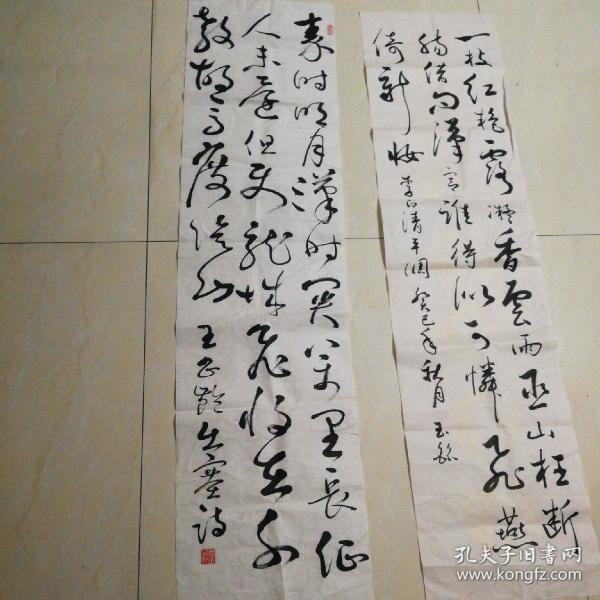 一枝红艳露凝香雲雨巫山枉断
腸借问漢宫谁得似可憐飛燕
倚新妆 李白清平调 癸巳年秋月
秦时明月漢时関万里長征
人未還但使龍城飛將在不
教胡馬度陰山 王昌龄出塞诗
孔夫子旧書网
www.kongfz.com